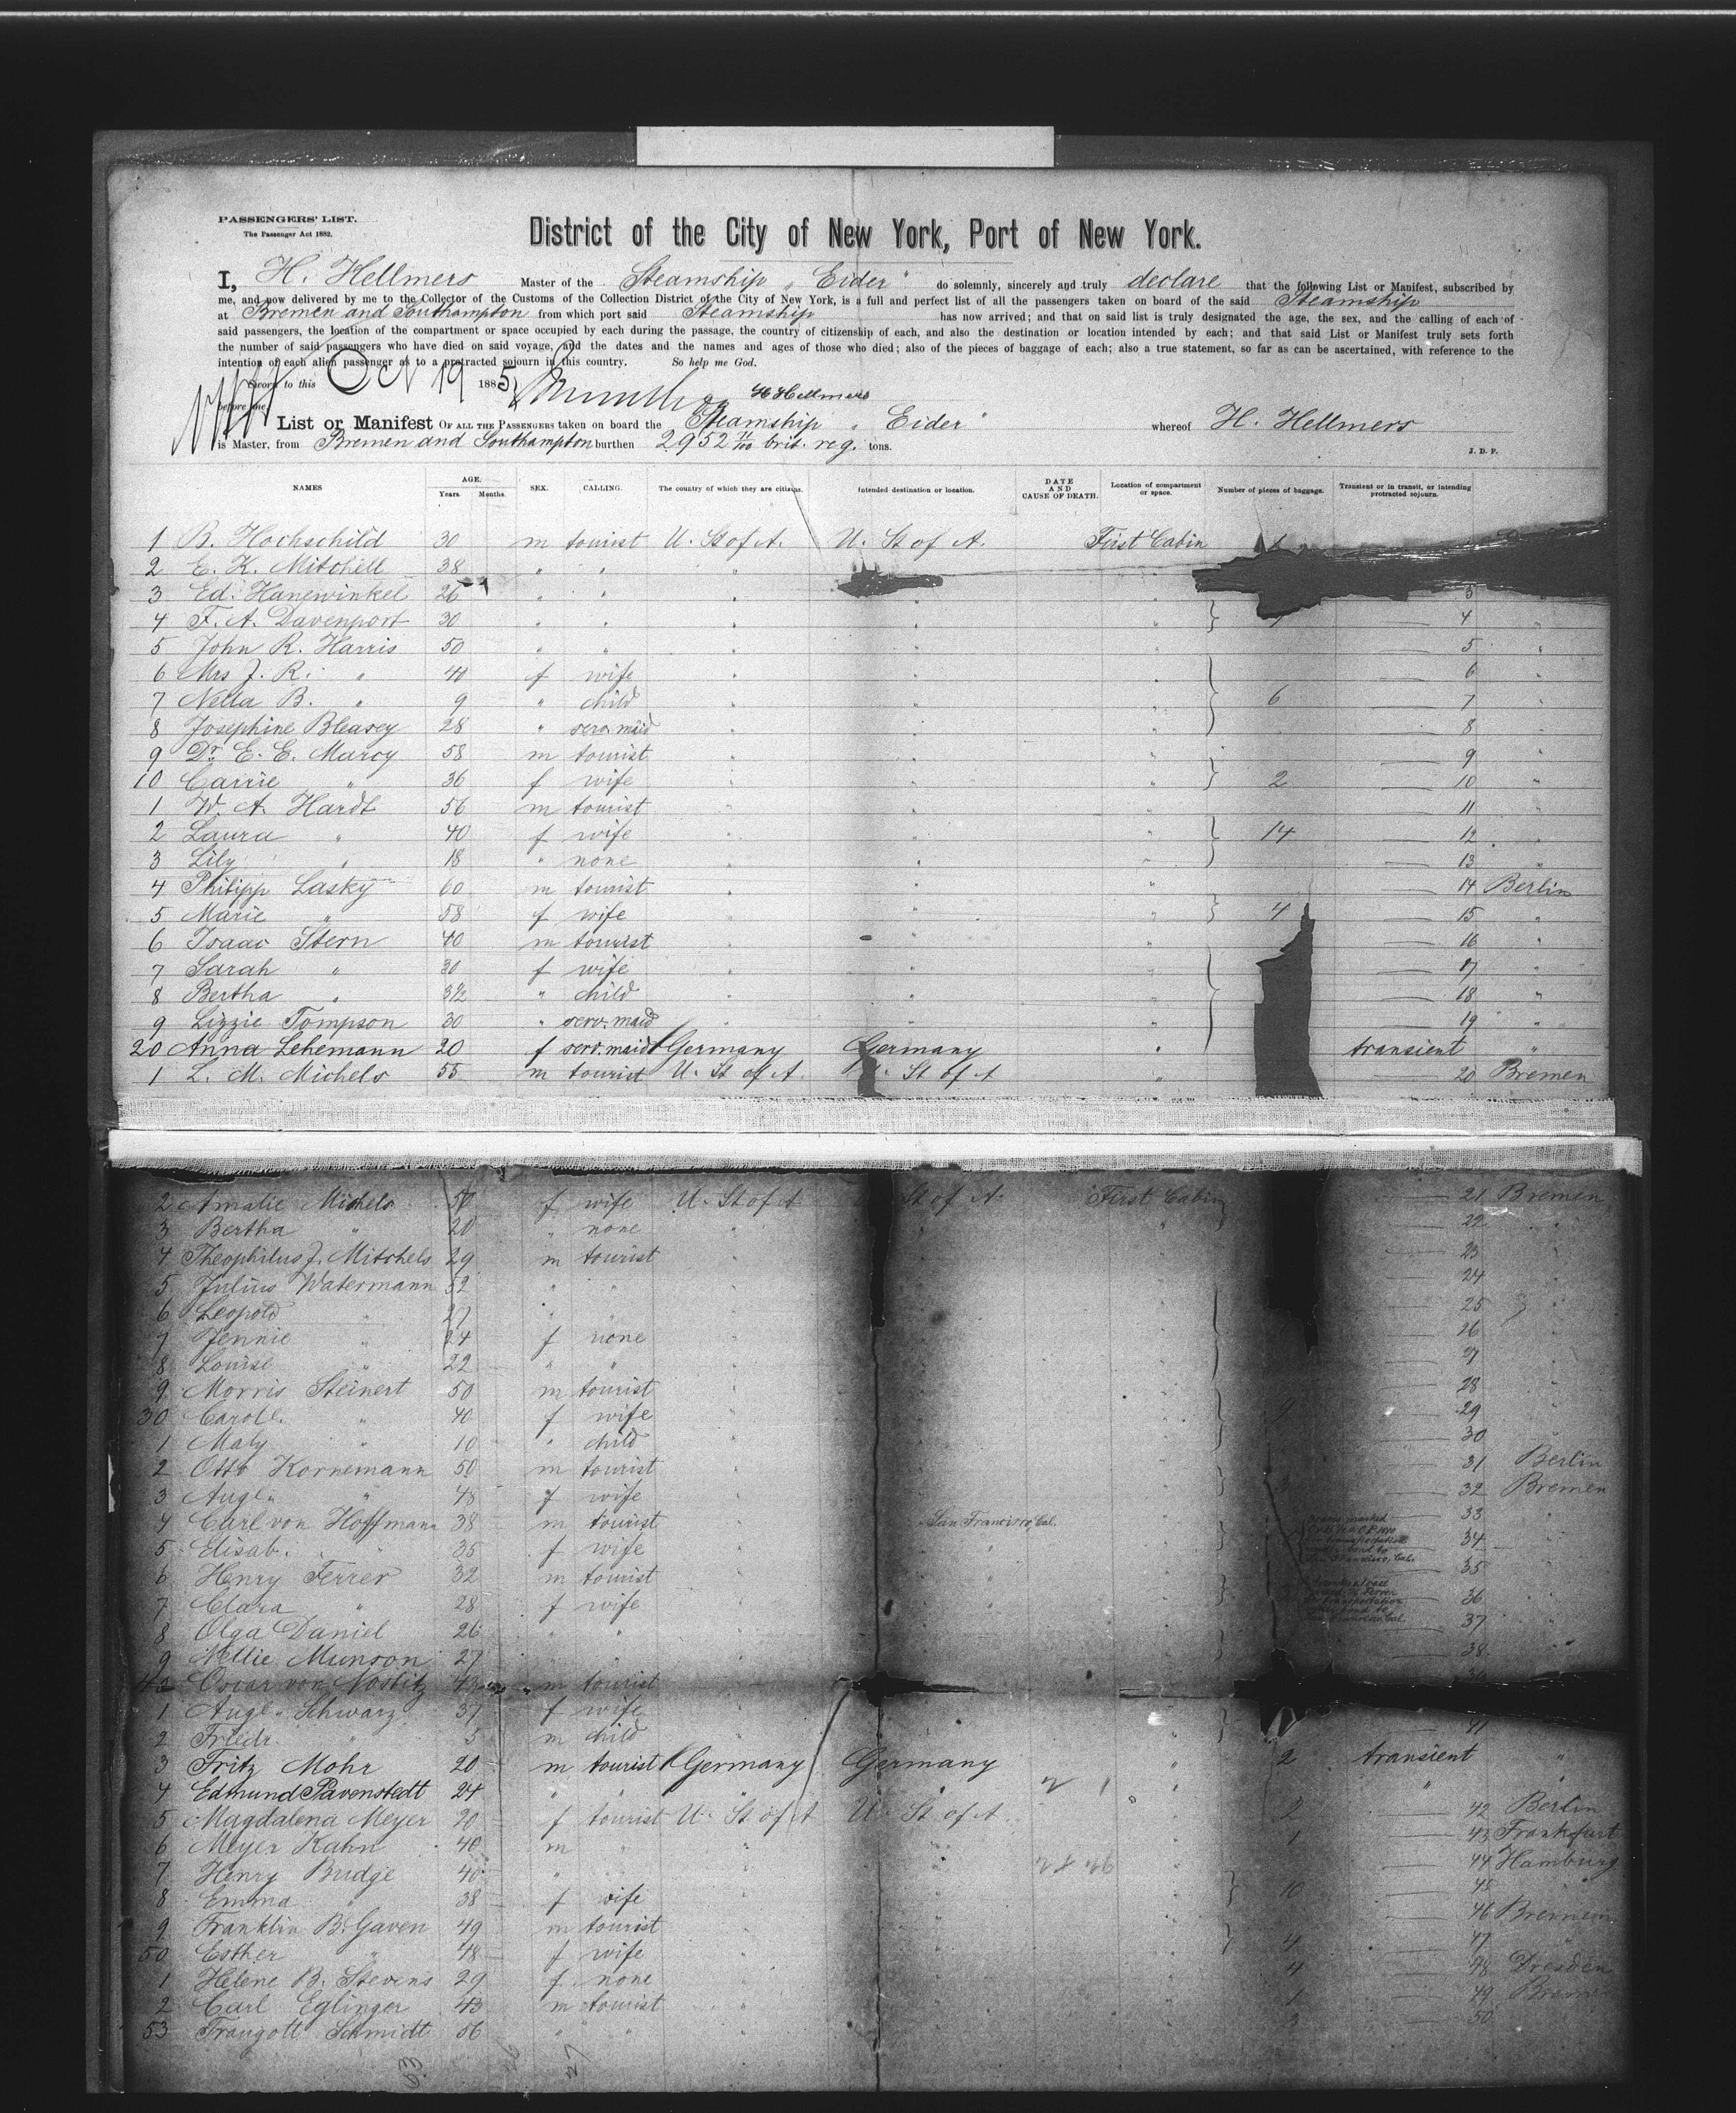 PASSENGERS' LIST.
The Passenger Act 1882.
District of the City of New York, Port of New York.
I, H. Hellmers Master of the Steamship „ Eider " do solemnly, sincerely and truly declare that the following List or Manifest, subscribed by
me, and now delivered by me to the Collector of the Customs of the Collection District of the City of New York, is a full and perfect list of all the passengers taken on board of the said Steamship
at Bremen and Southampton from which port said Steamship has now arrived; and that on said list is truly designated the age, the sex, and the calling of each of
said passengers, the location of the compartment or space occupied by each during the passage, the country of citizenship of each, and also the destination or location intended by each; and that said List or Manifest truly sets forth
the number of said passengers who have died on said voyage, and the dates and the names and ages of those who died; also of the pieces of baggage of each; also a true statement, so far as can be ascertained, with reference to the
intention of each alien passenger as to a protracted sojourn in this country. So help me God.
Sworn to this Oct 19 1885,
before me H Hellmers
List or Manifest OF ALL THE PASSENGERS taken on board the Steamship „ Eider " whereof H. Hellmers
is Master, from Bremen and Southampton burthen 2952 71/100 brit. reg. tons.
J. D. P.
NAMES AGE. Years. Months. SEX. CALLING. The country of which they are citizens. Intended destination or location. DATE AND CAUSE OF DEATH. Location of compartment or space. Number of pieces of baggage. Transient or in transit, or intending protracted sojourn.
1 B. Hochschild 30 m tourist U. St of A. U. St of A. First Cabin 1
2 E. K. Mitchell 38 " " "
3 Ed. Hanewinkel 26 " " " " " 3 "
4 F. A. Davenport 30 " " " " " 4 "
5 John R. Harris 50 " " " " " 5 "
6 Mrs J. R. " 40 f wife " " " 6 "
7 Nella B. " 9 " child " " " 6 7 "
8 Josephine Bleasey 28 " serv. maid " " " 8 "
9 Dr. E. E. Marcy 58 m tourist " " " 9 "
10 Carrie " 36 f wife " " " 2 10 "
1 W. A. Hardt 56 m tourist " " " 11 "
2 Laura " 40 f wife " " " 14 12 "
3 Lily " 18 " none " " " 13 "
4 Philipp Lasky 60 m tourist " " " 14 Berlin
5 Marie " 58 f wife " " " 4 15 "
6 Isaac Stern 40 m tourist " " " 16 "
7 Sarah " 30 f wife " " " 17 "
8 Bertha " 3½ " child " " " 18 "
9 Lizzie Tompson 30 " serv. maid " " " 19 "
20 Anna Lehemann 20 f serv. maid Germany Germany " transient "
1 L. M. Michels 55 m tourist U. St of A U. St of A " 20 Bremen
2 Amalie Michels 50 f wife U. St of A St of A. First Cabin 21 Bremen
3 Bertha " 20 " none " " 22 "
4 Theophilus J. Mitchels 29 m tourist 23 "
5 Julius Watermann 52 " " 24 "
6 Leopold " 27 " " 25 "
7 Jennie " 24 f none " 26 "
8 Louise " 22 " " " 27 "
9 Morris Steinert 50 m tourist " 28 "
30 Carole. " 40 f wife " 9 29 "
1 Maly " 10 " child " 30 "
2 Otto Kornemann 50 m tourist " 31 Berlin
3 Augl. " 48 f wife " 3 32 Bremen
4 Carl von Hoffmann 38 m tourist " San Francisco, Cal. 33 "
5 Elisab. " 35 f wife " " 34 "
6 Henry Ferrer 32 m tourist " " 35 "
7 Clara " 28 f wife " " 36 "
8 Olga Daniel 26 " " " 37 "
9 Nellie Munson 27 " " 38 "
Oscar von Nostitz m tourist
1 Augl. Schwarz 37 f wife
2 Friedr. " 5 m child 41
3 Fritz Mohr 20 m tourist Germany Germany " 2 transient "
4 Edmund Pavenstedt 24 " " " " " "
5 Magdalena Meyer 20 f tourist U. St of A U. St of A 2 42 Berlin
6 Meyer Kahn 40 m " " " 1 43 Frankfurt
7 Henry Budge 40 " " " 44 Hamburg
8 Emma " 38 f wife " 10 45 "
9 Franklin B. Gaven 49 m tourist " 46 Bremen
50 Esther " 48 f wife " 4 47 "
1 Helene B. Stevens 29 f none " 4 48 Dresden
2 Carl Eglinger 43 m tourist " 1 49 Bremen
53 Traugott Schmidt 56 " " " 3 50